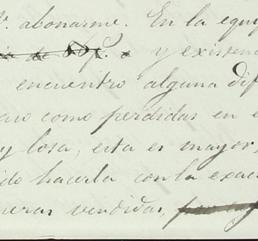 abonarme. En la equi
y existen
encuentro alguna dif
como perdidas en e
y losa, esta es mayor,
hacerla con la exac
vendidas,